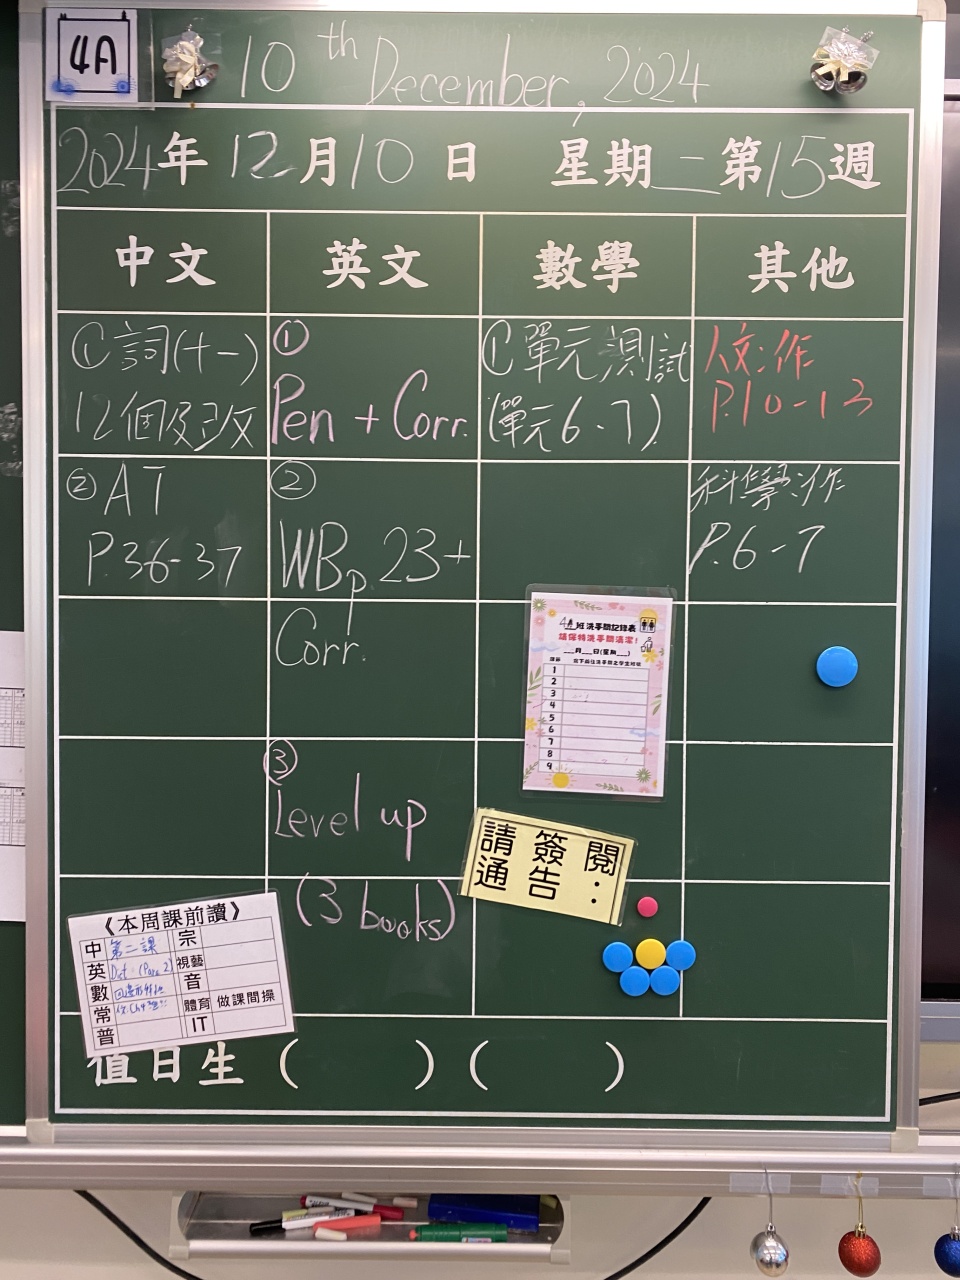 4A
10th December, 2024
2024年12月10日 星期二第15週
中文 英文 數學 其他
① 詞(十一)
12個及改
② AT
P.36-37
①
Pen + Corr.
②
WB p.23+
Corr.
③
Level up
(3 books)
① 單元測試
(單元6-7)
人文作
P.10-13
科學作
P.6-7
4A班洗手間記錄表
請保持洗手間清潔!
___月___日(星期___)
1
2
3
4
5
6
7
8
9
請簽閱:
通告
《本周課前讀》
中 第二課 宗
英 Dict (Para 2) 視藝
數 音
常 體育 做課間操
普 IT
值日生 ( ) ( )